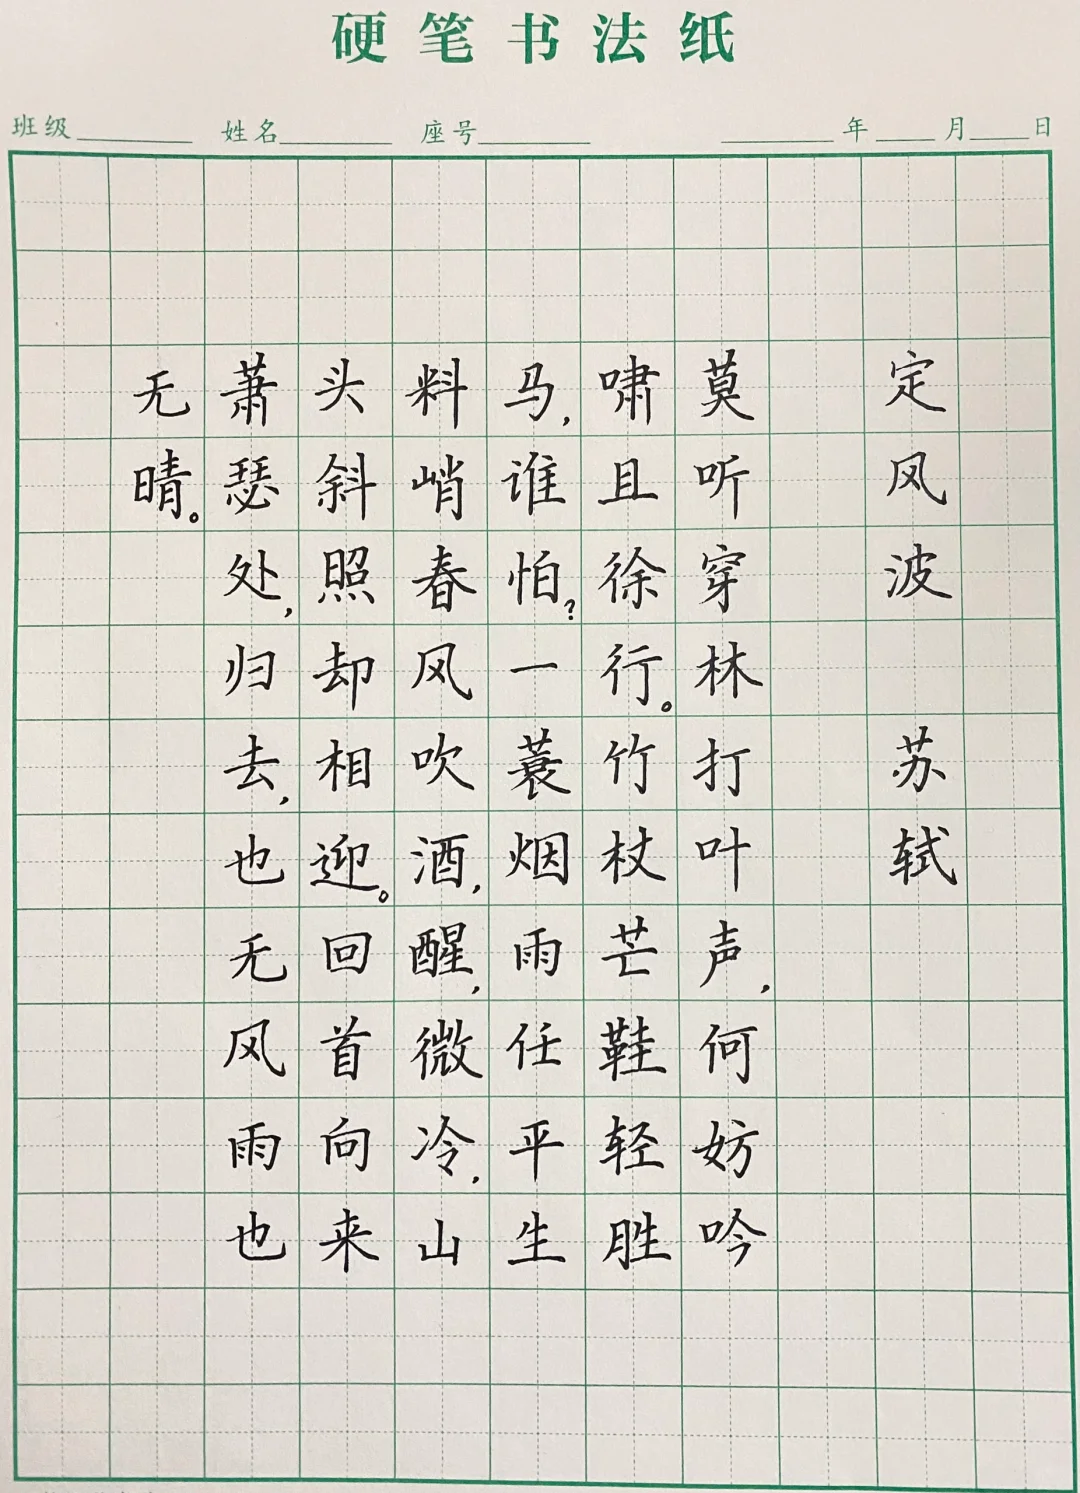 硬笔书法纸
班级 姓名 座号 年 月 日
定风波 苏轼
莫听穿林打叶声，何妨吟
啸且徐行。竹杖芒鞋轻胜
马，谁怕？一蓑烟雨任平生
料峭春风吹酒，醒，微冷，山
头斜照却相迎。回首向来
萧瑟处，归去，也无风雨也
无晴。